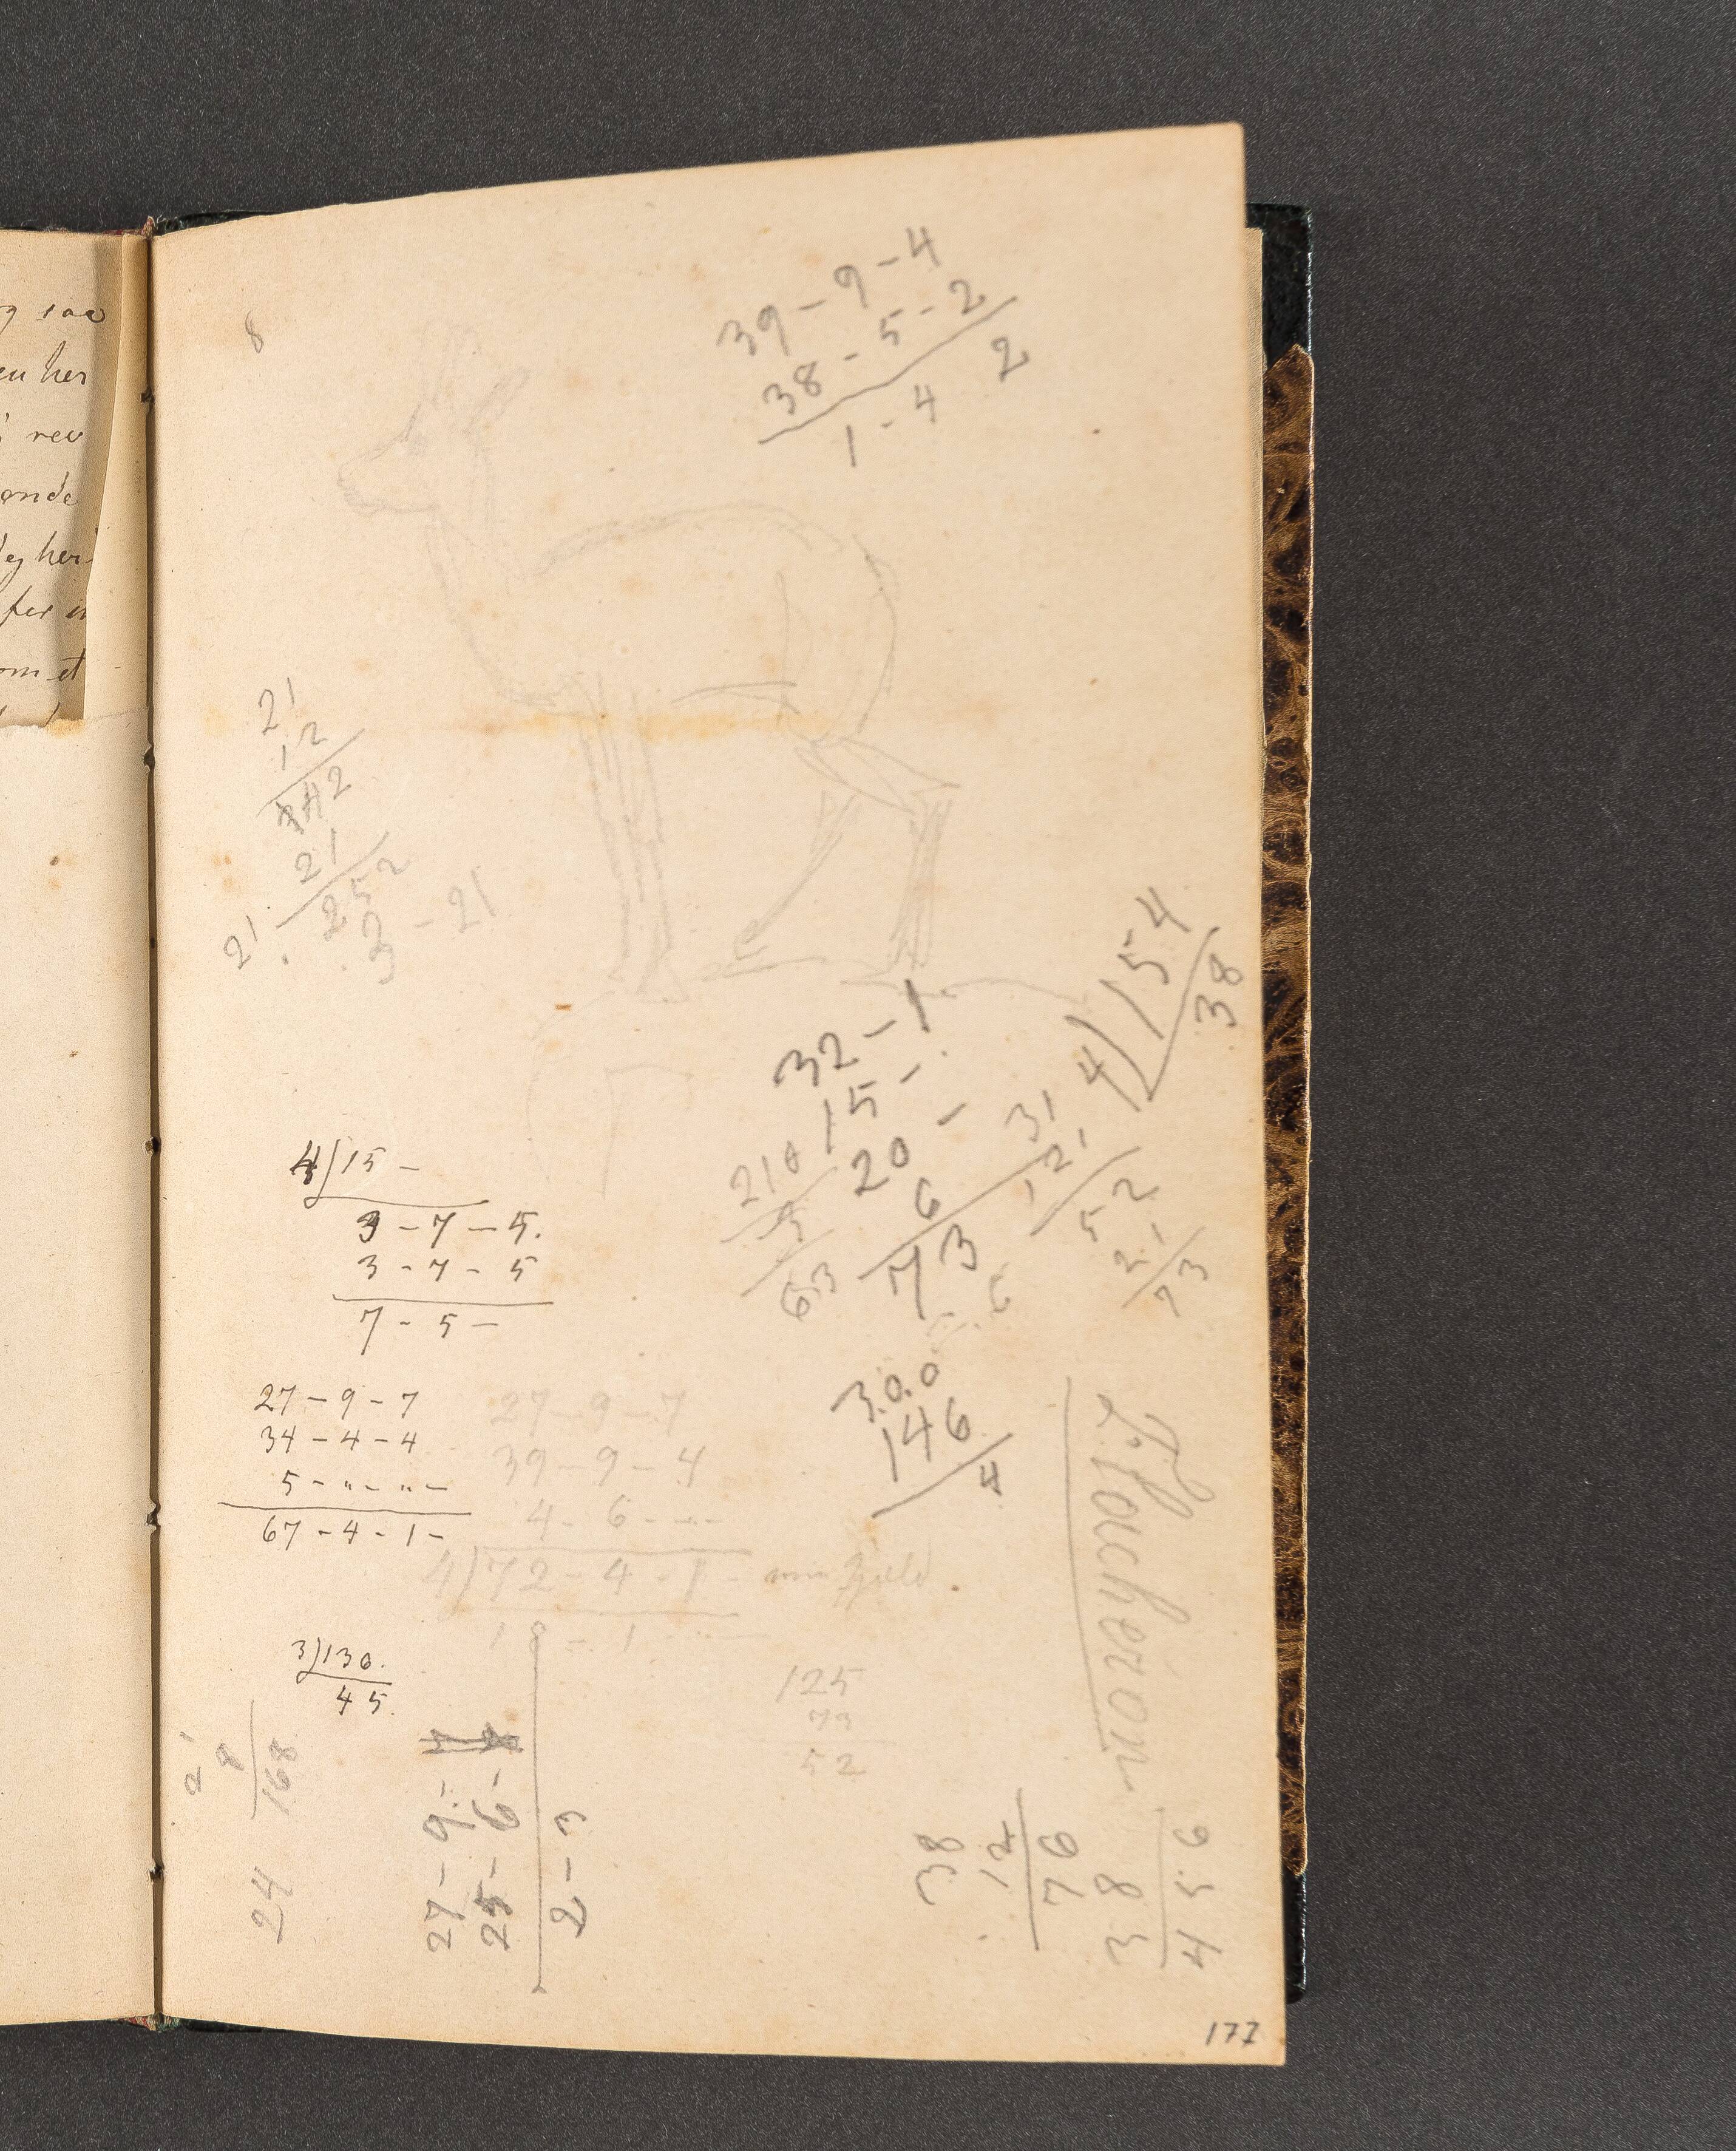 g saa
en her
rev
ande
eg her
for
om et
8
39 - 9 - 4
38 - 5 - 2
1 - 4 2
21
12
42
21
252
21 - 21
3
32 - 1
15 -
20 -
6
73
4)154
38
31
21
52
21
73
210
3
63
6
4)15 -
3 - 7 - 5.
3 - 7 - 5
7 - 5 -
27 - 9 - 7
34 - 4 - 4
5 - " - " -
67 - 4 - 1 -
27 - 9 - 7
39 - 9 - 4
4 - 6 - " -
4)72 - 4 - 1 - min Gjæld.
18 - 1
300
146
4
3)130.
45.
125
73
52
21
8
168
24
27 - 9 -
25 - 6 -
2 - 3
38
12
76
38
456
177